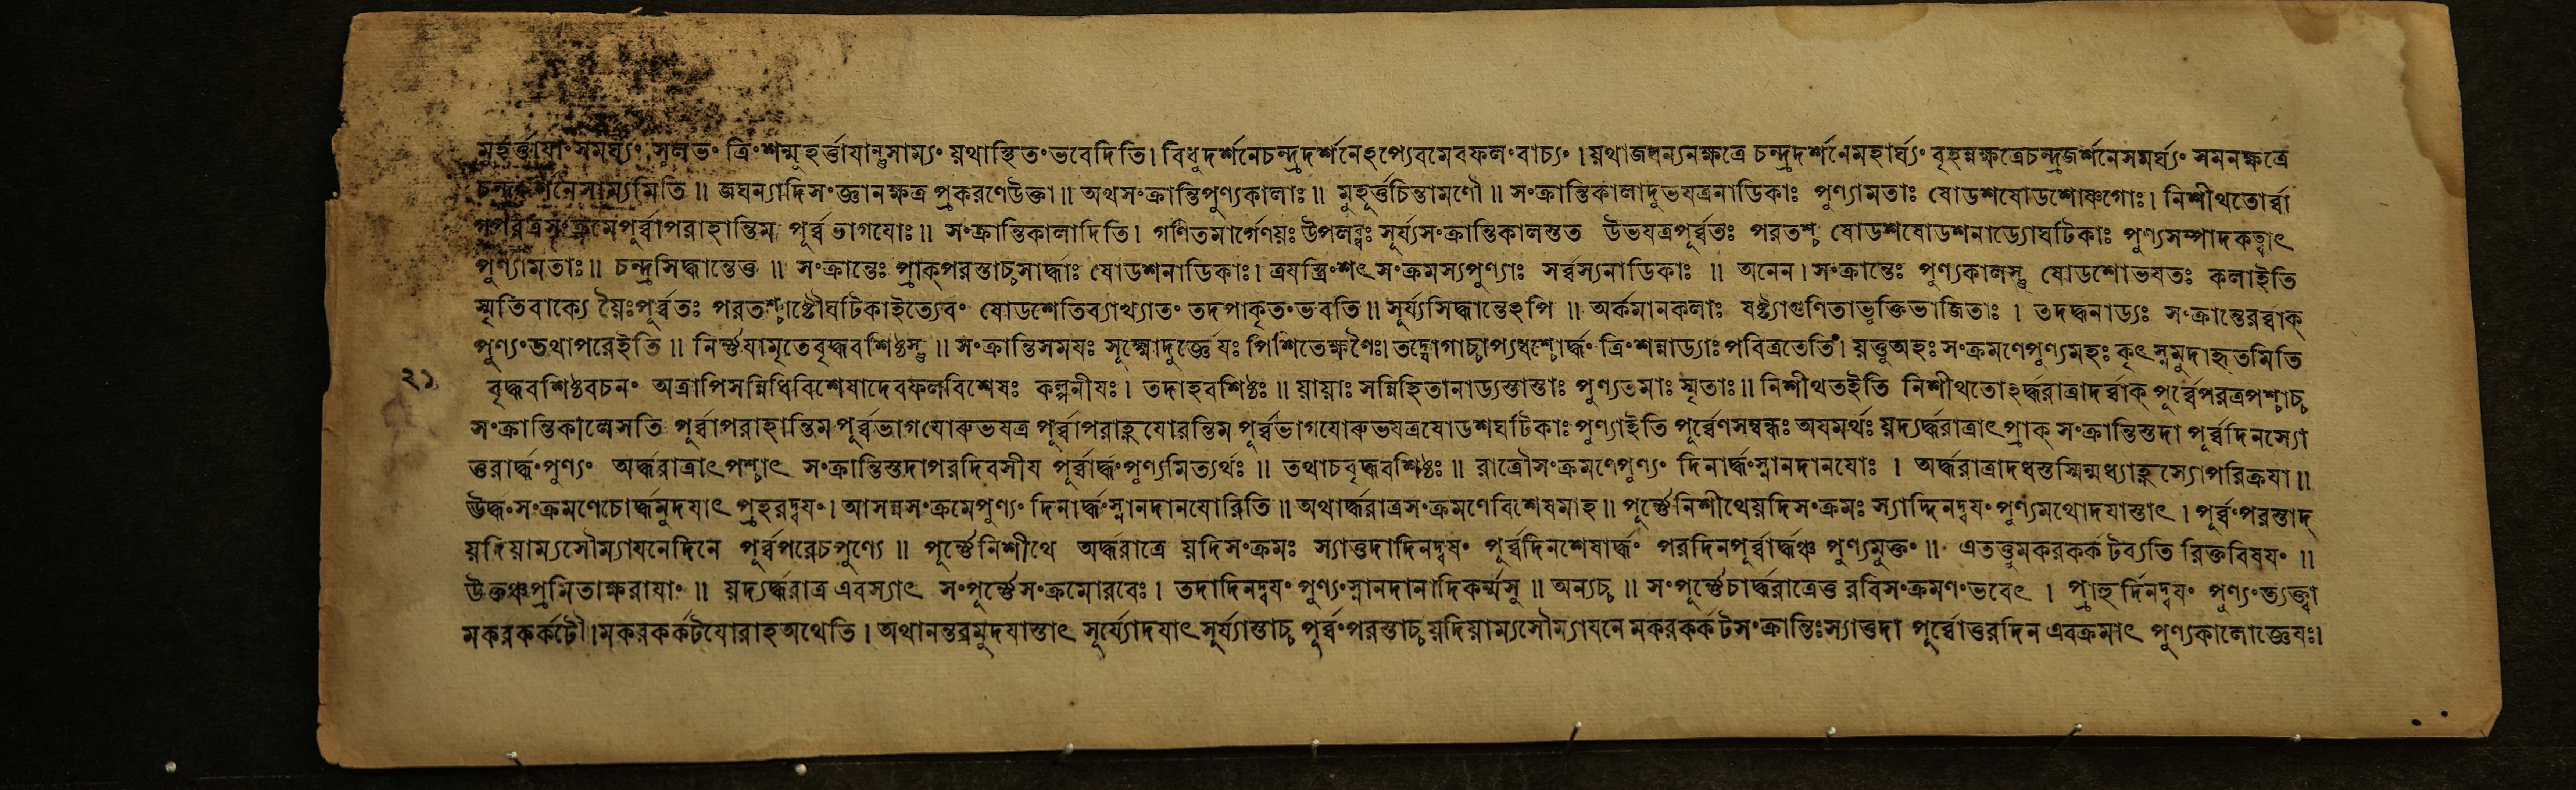 মুহূর্ত্তাযাং সমর্ঘ্যং সুলভং ত্রিংশন্মুহূর্ত্তাযান্তুসাম্যং য়থাস্থিতংভবেদিতি। বিধুদর্শনেচন্দ্রদর্শনেঽপ্যেবমেবফলংবাচ্যং। য়থাজঘন্যনক্ষত্রে চন্দ্রদর্শনেমহার্ঘ্যং বৃহন্নক্ষত্রেচন্দ্রজর্শনেসমর্ঘ্যং সমনক্ষত্রে
চন্দ্রদর্শনেসাম্যমিতি॥ জঘন্যাদিসংজ্ঞানক্ষত্র প্রকরণেউক্তা॥ অথসংক্রান্তিপুণ্যকালাঃ॥ মুহূর্ত্তচিন্তামণৌ॥ সংক্রান্তিকালাদুভযত্রনাডিকাঃ পুণ্যামতাঃ ষোডশষোডশোষ্ণগোঃ। নিশীথতোর্ব্বা
গপরত্রসংক্রমেপূর্ব্বাপরাহান্তিম পূর্ব্বভাগযোঃ॥ সংক্রান্তিকালাদিতি। গণিতমার্গেণয়ঃ উপলব্ধঃ সূর্য্যসংক্রান্তিকালস্তত উভযত্রপূর্ব্বতঃ পরতশ্চ ষোডশষোডশনাড্যোঘটিকাঃ পুণ্যসম্পাদকত্বাৎ
পুণ্যামতাঃ॥ চন্দ্রসিদ্ধান্তেত্তু॥ সংক্রান্তেঃ প্রাক্পরস্তাচ্চসার্দ্ধাঃ ষোডশনাডিকাঃ। ত্রযস্ত্রিংশৎ সংক্রমস্যপুণ্যাঃ সর্ব্বস্যনাডিকাঃ॥ অনেন। সংক্রান্তেঃ পুণ্যকালস্তু ষোডশোভযতঃ কলাইতি
স্মৃতিবাক্যে য়ৈঃপূর্ব্বতঃ পরতশ্চাষ্টৌঘটিকাইত্যেবং ষোডশেতিব্যাখ্যাতং তদপাকৃতংভবতি॥ সূর্য্যসিদ্ধান্তেঽপি॥ অর্কমানকলাঃ ষষ্ট্যাগুণিতাভুক্তিভাজিতাঃ। তদর্দ্ধনাড্যঃ সংক্রান্তেরর্ব্বাক্
পুণ্যংতথাপরেইতি॥ নির্ণ্ণযামৃতেবৃদ্ধবশিষ্ঠস্তু॥ সংক্রান্তিসমযঃ সূক্ষ্মোদুর্জ্ঞেযঃ পিশিতেক্ষণৈঃ। তদ্যোগাচ্চাপ্যধশ্চোর্দ্ধং ত্রিংশন্নাড্যাঃপবিত্রতেতি। য়ত্তুঅহঃ সংক্রমণেপুণ্যমহঃ কৃৎস্নমুদাহৃতমিতি
২১ বৃদ্ধবশিষ্ঠবচনং অত্রাপিসন্নিধিবিশেষাদেবফলবিশেষঃ কল্পনীযঃ। তদাহবশিষ্ঠঃ॥ য়ায়াঃ সন্নিহিতানাড্যস্তাস্তাঃ পুণ্যতমাঃ স্মৃতাঃ॥ নিশীথতইতি নিশীথতোঽর্দ্ধরাত্রাদর্ব্বাক্ পূর্ব্বেপরত্রপশ্চাচ্চ
সংক্রান্তিকালেসতি পূর্ব্বাপরাহান্তিম পূর্ব্বভাগযোৰুভযত্র পূর্ব্বাপরাহ্ণযোরন্তিম পূর্ব্বভাগযোৰুভযত্রষোডশঘটিকাঃ পুণ্যাইতি পূর্ব্বেণসম্বন্ধঃ অযমর্থঃ য়দ্যর্দ্ধরাত্রাৎ প্রাক্ সংক্রান্তিস্তদা পূর্ব্বদিনস্যো
ত্তরার্দ্ধংপুণ্যং অর্দ্ধরাত্রাৎ পশ্চাৎ সংক্রান্তিস্তদাপরদিবসীয পূর্ব্বার্দ্ধংপুণ্যমিত্যর্থঃ॥ তথাচবৃদ্ধবশিষ্ঠঃ॥ রাত্রৌসংক্রমণেপুণ্যং দিনার্দ্ধংস্নানদানযোঃ। অর্দ্ধরাত্রাদধস্তস্মিন্মধ্যাহ্ণস্যোপরিক্রযা॥
ঊর্দ্ধংসংক্রমণেচোর্দ্ধমুদযাৎ প্রহরদ্বযং। আসন্নসংক্রমেপুণ্যং দিনার্দ্ধংস্নানদানযোরিতি॥ অথার্দ্ধরাত্রসংক্রমণেবিশেষমাহ॥ পূর্ণ্ণেনিশীথেয়দিসংক্রমঃ স্যাদ্দিনদ্বযং পুণ্যমথোদযাস্তাৎ। পূর্ব্বংপরস্তাদ্
য়দিয়াম্যসৌম্যাযনেদিনে পূর্ব্বপরেচপুণ্যে॥ পূর্ণ্ণেনিশীথে অর্দ্ধরাত্রে য়দিসংক্রমঃ স্যাত্তদাদিনদ্বযং পূর্ব্বদিনশেষার্দ্ধং পরদিনপূর্ব্বার্দ্ধঞ্চ পুণ্যমুক্তং॥ এতত্তুমকরকর্কটব্যতিরিক্তবিষযং॥
উক্তঞ্চপ্রমিতাক্ষরাযাং॥ য়দ্যর্দ্ধরাত্র এবস্যাৎ সংপূর্ণ্ণেসংক্রমোরবেঃ। তদাদিনদ্বযং পুণ্যংস্নানদানাদিকর্ম্মসু॥ অন্যচ্চ॥ সংপূর্ণ্ণেচার্দ্ধরাত্রেত্তু রবিসংক্রমণংভবেৎ। প্রাহুর্দিনদ্বযং পুণ্যংত্যক্ত্বা
মকরকর্কটৌ।মকরকর্কটযোরাহঅথেতি। অথানন্তরমুদযাস্তাৎ সূর্য্যোদযাৎ সূর্য্যাস্তাচ্চ পূর্ব্বংপরস্তাচ্চয়দিয়াম্যসৌম্যাযনে মকরকর্কটসংক্রান্তিঃস্যাত্তদা পূর্ব্বোত্তরদিন এবক্রমাৎ পুণ্যকালোজ্ঞেযঃ।